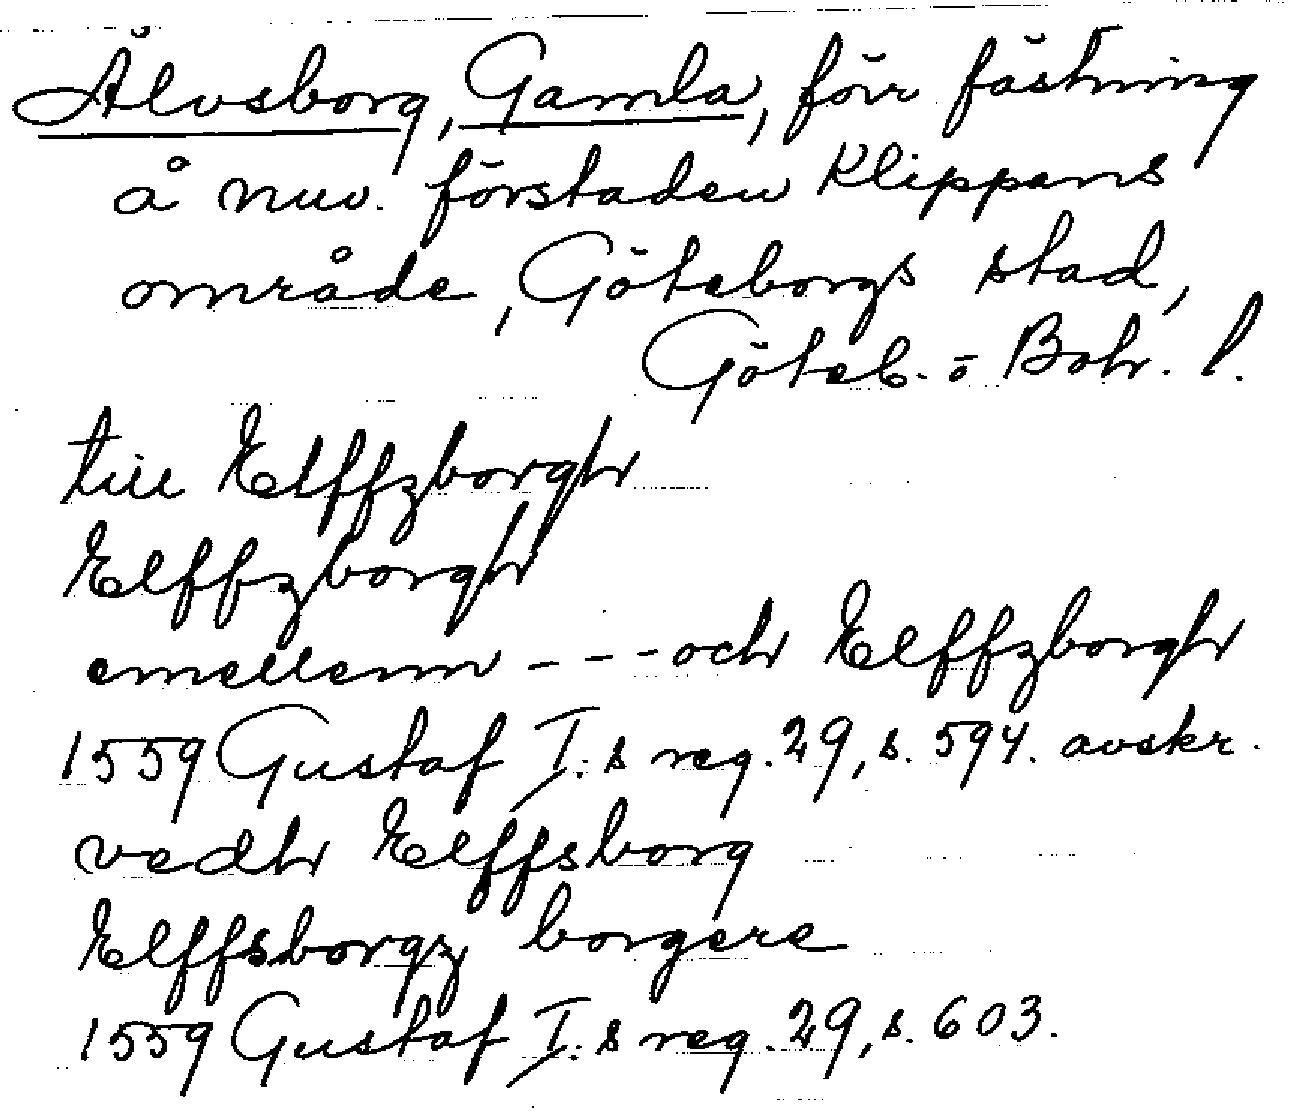 Älvsborg, Gamla, förr fästning
å nuv. förstaden Klippans
område, Göteborgs stad,
Göteb. o Boh. l.
till Elffzborgh
Elffzborgh
emellenn - - - och Elffzborgh
1559 Gustaf I:s reg. 29, s. 594. avskr.
vedh Elffsborg
Elffsborgz borgere
1559 Gustaf I:s reg. 29, s. 603.